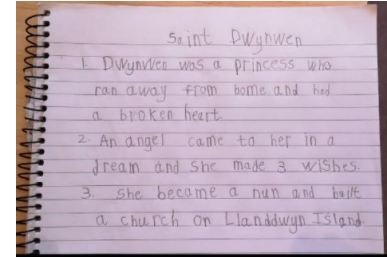 Saint Dwynwen
1. Dwynwen was a princess who
ran away from home and had
a broken heart.
2. An angel came to her in a
dream and she made 3 wishes.
3. she became a nun and built
a church on Llanddwyn Island.